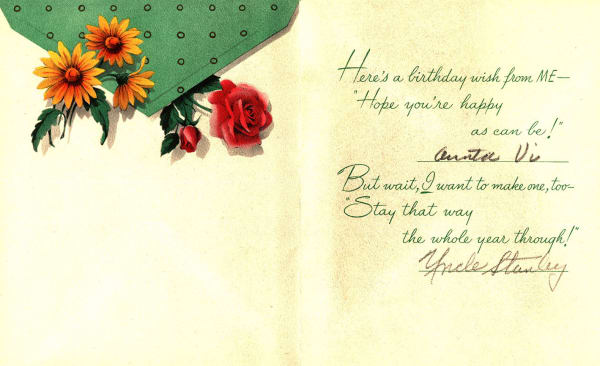 Here's a birthday wish from ME—
"Hope you're happy
as can be!"
Aunta Vi
But wait, I want to make one, too—
"Stay that way
the whole year through!"
Uncle Stanley